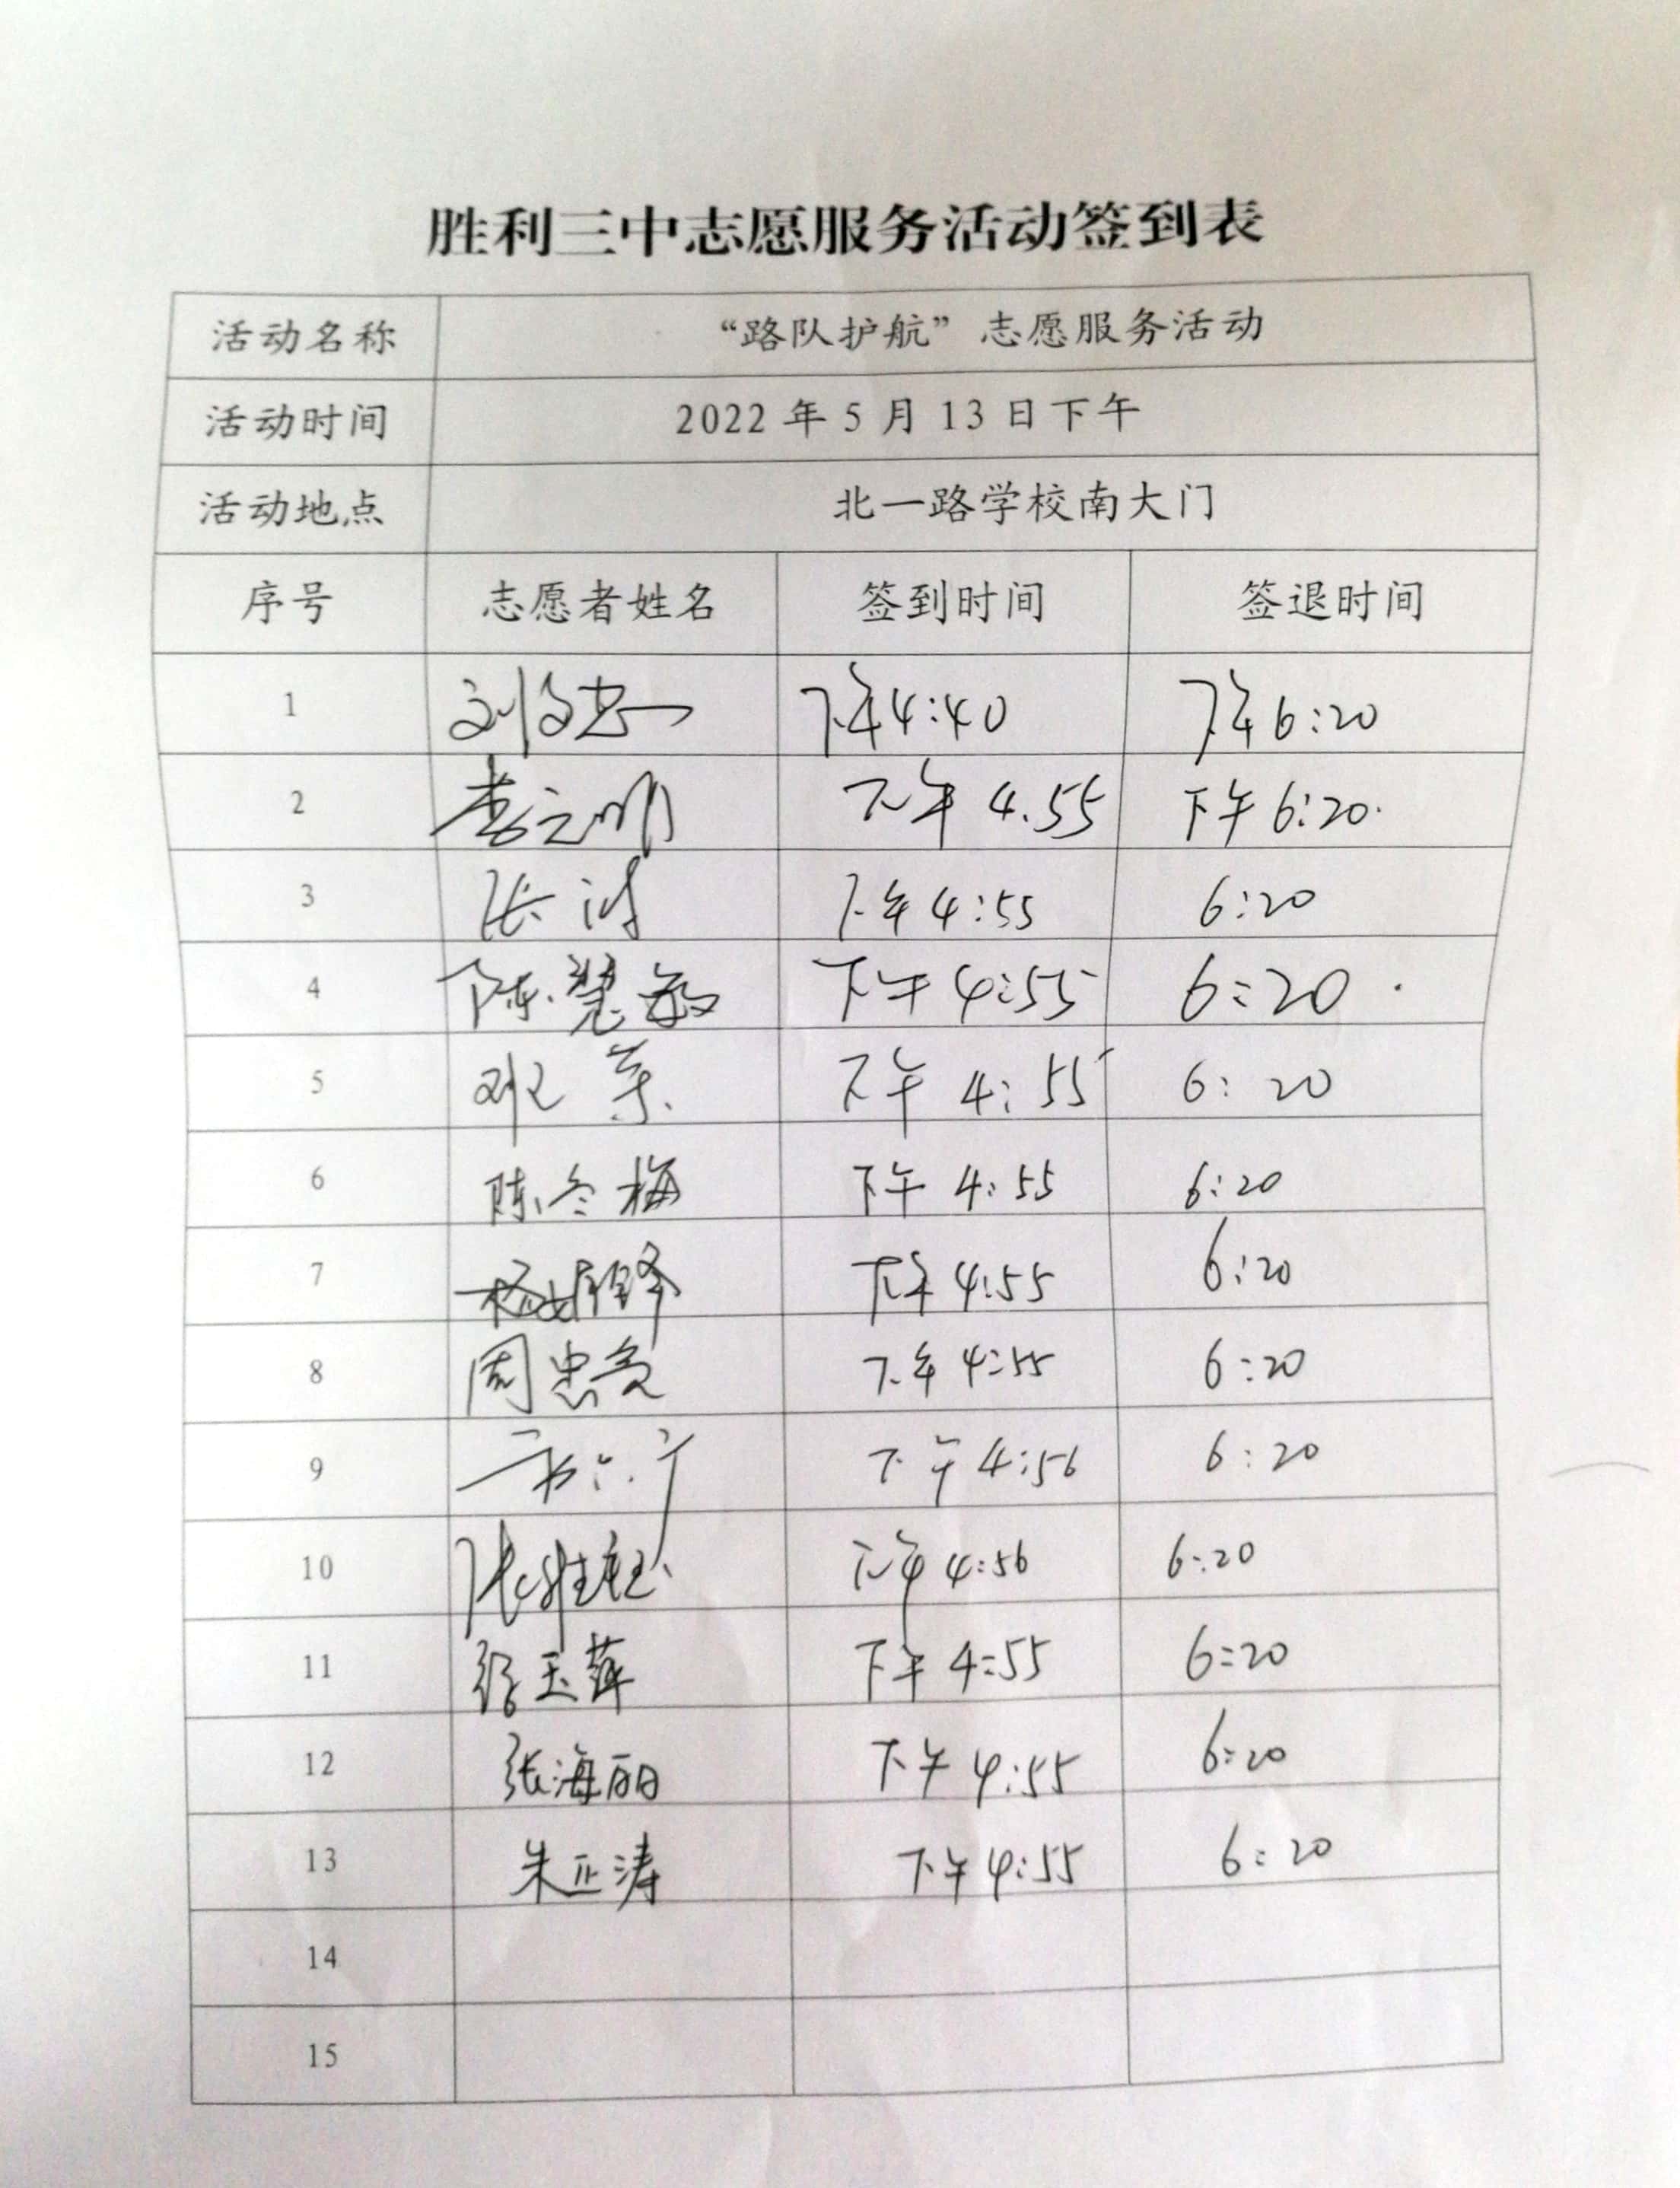 胜利三中志愿服务活动签到表
活动名称 “路队护航”志愿服务活动
活动时间 2022年5月13日下午
活动地点 北一路学校南大门
序号 志愿者姓名 签到时间 签退时间
1 刘 下午4:40 下午6:20
2 下午4.55 下午6:20.
3 张 下午4:55 6:20
4 陈慧敏 下午4:55 6:20
5 邓 下午4:55 6:20
6 陈冬梅 下午4:55 6:20
7 杨 下午4:55 6:20
8 周忠 下午4:55 6:20
9 下午4:56 6:20
10 张胜 下午4:56 6:20
11 徐玉萍 下午4:55 6:20
12 张海丽 下午4:55 6:20
13 朱正涛 下午4:55 6:20
14
15